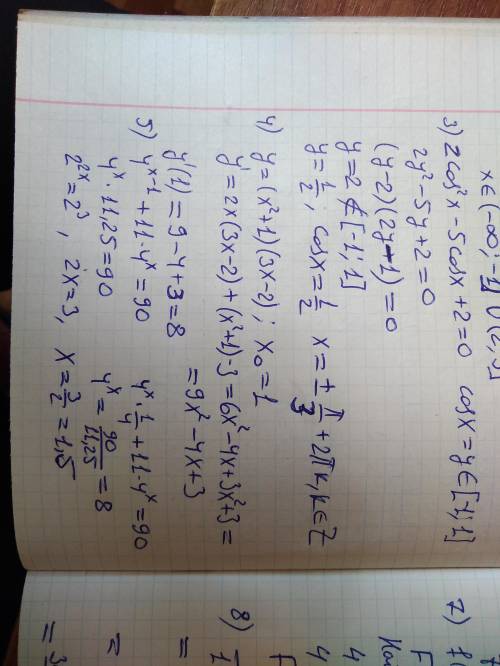 x ∈ (-∞; 1] ∪ (2; 3]
3) 2cos²x - 5cosx + 2 = 0 cosx = y ∈ [-1; 1]
2y² - 5y + 2 = 0
(y - 2)(2y - 1) = 0
y = 2 ∉ [-1; 1]
y = 1/2, cosx = 1/2 x = ± π/3 + 2πk, k ∈ Z
4) y = (x² + 1)(3x - 2); x₀ = 1
y' = 2x(3x - 2) + (x² + 1)·3 = 6x² - 4x + 3x² + 3 =
= 9x² - 4x + 3
y'(1) = 9 - 4 + 3 = 8
5) 4^(x-1) + 11·4^x = 90 4^x · 1/4 + 11·4^x = 90
4^x · 11,25 = 90 4^x = 90/11,25 = 8
2^(2x) = 2³, 2x = 3, x = 3/2 = 1,5
7)
F
4
4
F
8)
=
=
= 3